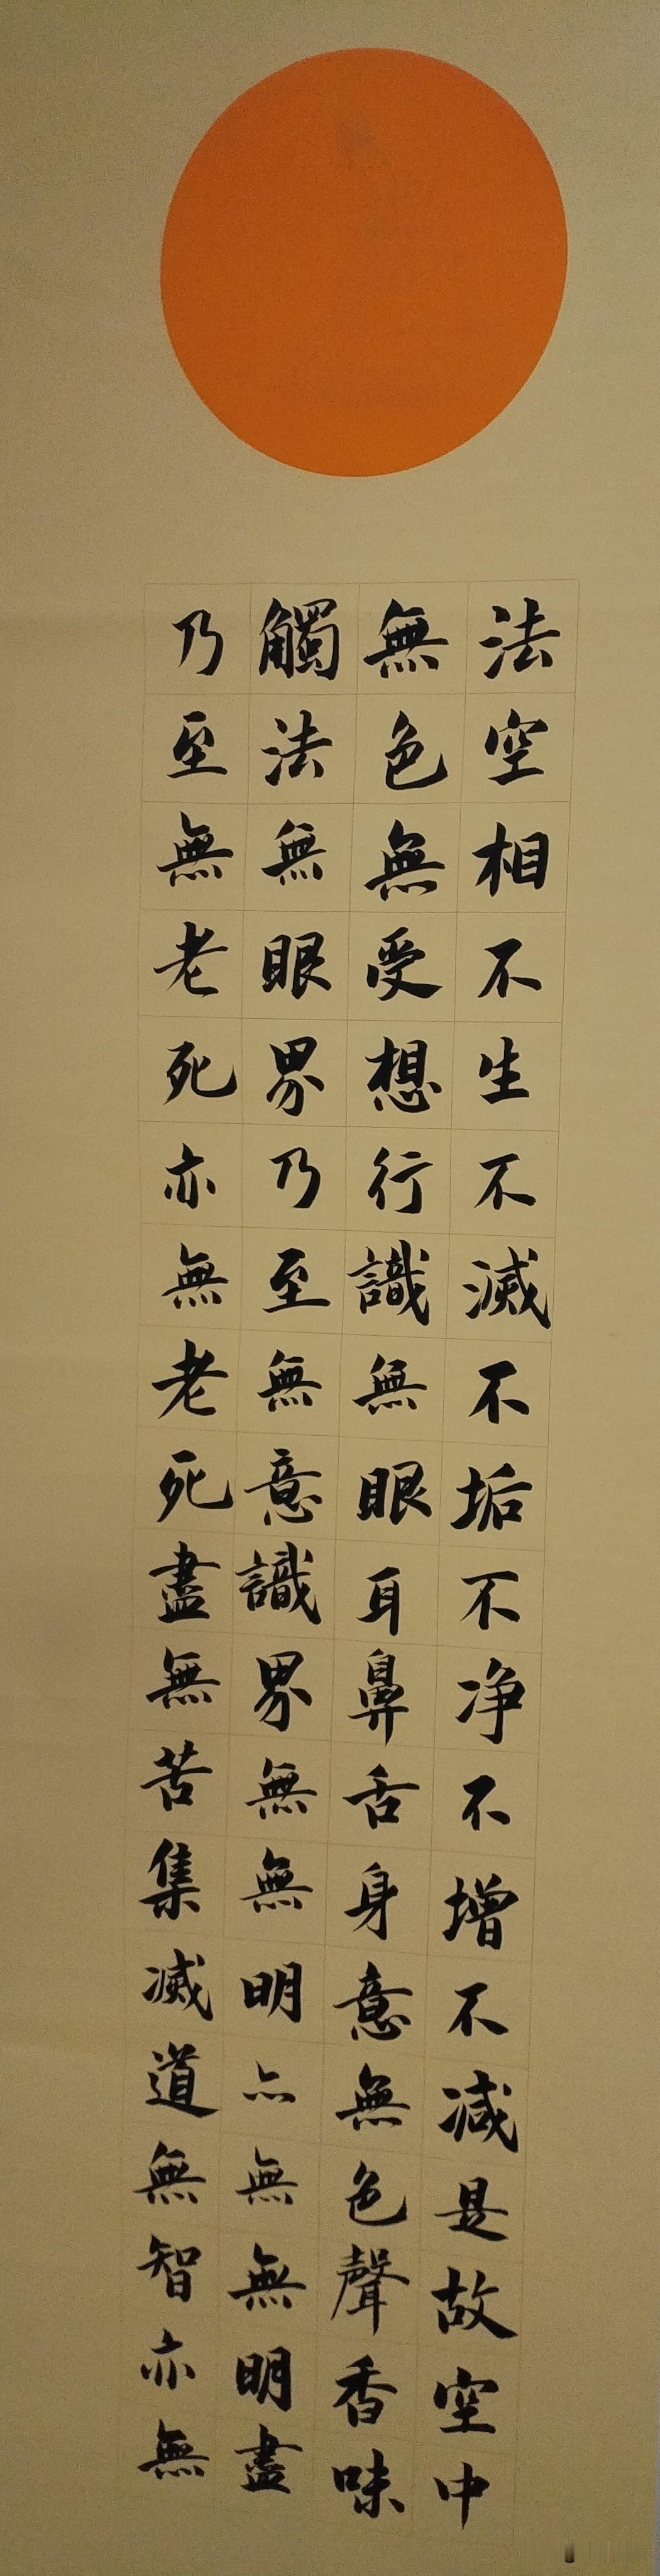 法空相不生不滅不垢不净不增不减是故空中
無色無受想行識無眼耳鼻舌身意無色聲香味
觸法無眼界乃至無意識界無無明亦無無明盡
乃至無老死亦無老死盡無苦集滅道無智亦無